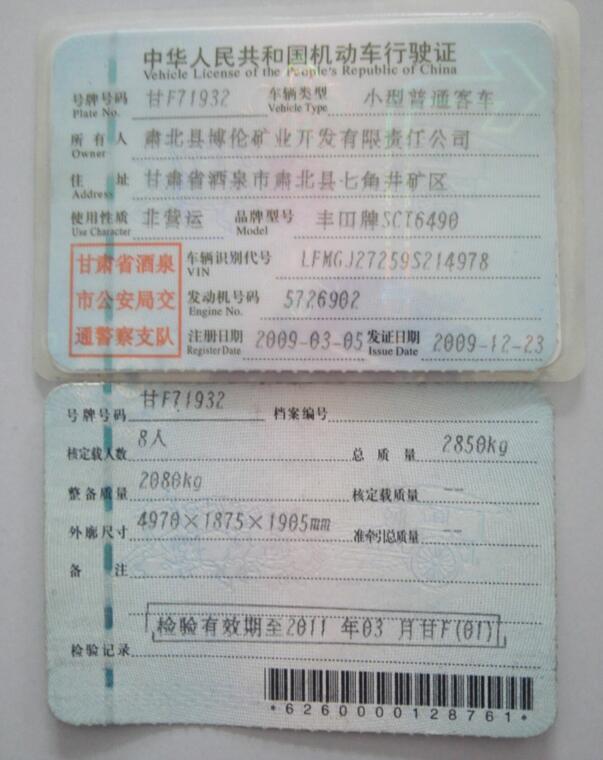 中华人民共和国机动车行驶证
Vehicle License of the People's Republic of China
号牌号码 甘F71932 车辆类型 小型普通客车
Plate No. Vehicle Type
所有人 肃北县博伦矿业开发有限责任公司
Owner
住址 甘肃省酒泉市肃北县七角井矿区
Address
使用性质 非营运 品牌型号 丰田牌SCT6490
Use Character Model
甘肃省酒泉
市公安局交
通警察支队
车辆识别代号 LFMGJ27259S214978
VIN
发动机号码 5726902
Engine No.
注册日期 2009-03-05 发证日期 2009-12-23
Register Date Issue Date
号牌号码 甘F71932 档案编号
核定载人数 8人 总质量 2850kg
整备质量 2080kg 核定载质量 --
外廓尺寸 4970×1875×1905mm 准牵引总质量 --
备注
检验记录 检验有效期至2011 年03 月甘F(01)
*6260000128761*